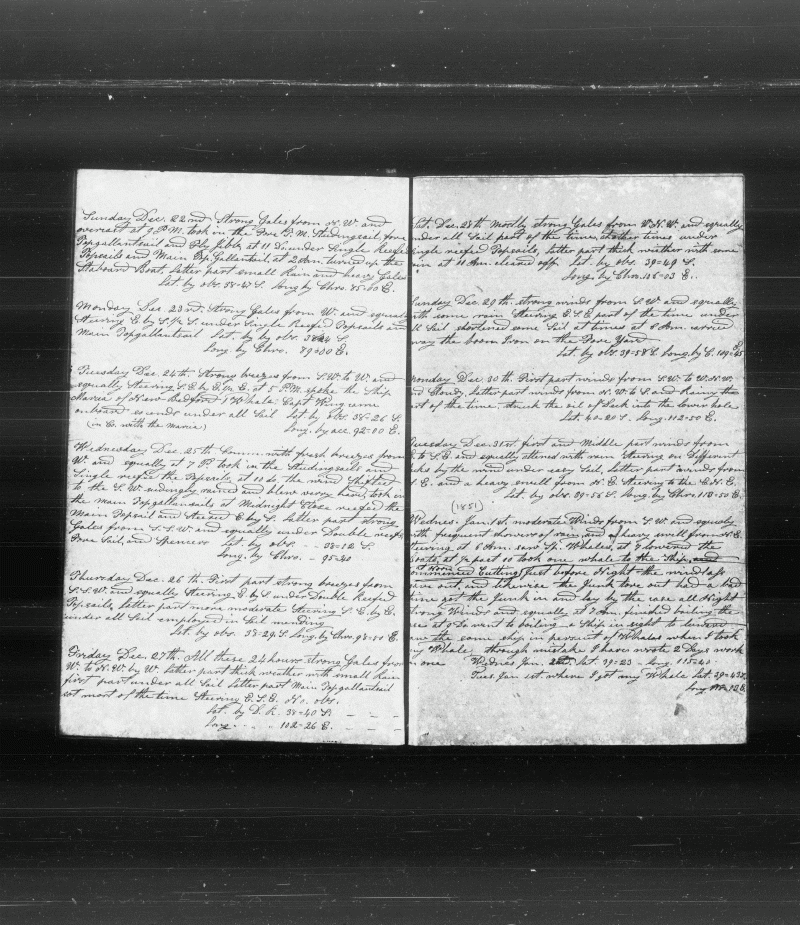 Sunday Dec. 22nd Strong Gales from N.W. and
overcast at 9 P.M. took in the Fore T.M. Studingsail, fore
Topgallantsail and Fly Jibb at 11 Do. under Single Reefed
Topsails and Main Topgallantsail, at 2 Am. turned up the
Staboard Boat, latter part small Rain and heavy Gales
Lat. by obs. 38-47 S. Long by Chro. 85-60 E.
Monday Dec. 23rd. Strong Gales from W. and equally
Steering E. by S. under Single Reefed Topsails and
Main Topgallantsail Lat. by obs.
Long. by Chro. 89-00 E.
Tuesday Dec. 24th. Strong breezes from S.W. to W. and
equally Steering S.E. by E. at 5 P.M. spoke the Ship
Maria of New Bedford 1 Whale. Capt King came
onboard ends under all Sail Lat by obs. 38-26 S.
(in Co. with the maria) Long. by acc. 92-00 E.
Wednesday Dec. 25th Comm. with fresh breezes from
W. and equally at 7 P. took in the Studingsails and
Single reefed the Topsails, at 10 do. the wind Shifted
to the S.W. sudingly rained and blew verry heavy, took in
the main Topgallansails at Midnight Close reefed the
Main Topsail and Steered E. by S. latter part strong
Gales from S.S.W. and equally under Double reefed
Fore Sail, and Spencers Lat. by obs. - - 38-12 S.
Long. by Chro. - 95-40
Thursday Dec. 26th. First part strong breezes from
S.S.W. and equally Steering E. by S under Double Reefed
Topsails, latter part more moderate Steering S.E. by E.
under all Sail employed in Sail mending
Lat. by obs. 38-29 S. Long. by Chro. 98-00 E.
Firday Dec. 27th. All these 24 hours strong Gales from
W. to N.W. by W. latter part thick weather with small Rain
first part under all Sail latter part Main Topgallantsail
set most of the time Steering E.S.E. No. obs.
Lat. by D.R. 38-40 S. - - -
Long. - - - 102-26 E. - - -
Sat. Dec. 28th Mostly strong Gales from W.N.W. and equally
under all Sail part of the times, other times under
Single reefed Topsails, latter part thick weather with some
rain at 11 Am. cleared off. Lat. by obs. 39-49 S.
Long. by Chro. 106-03 E.
Sunday Dec. 29th. strong winds from S.W. and equally
with some rain Steering E.S.E. part of the time under
all Sail shortend some Sail at times at 8 Am. carried
away the boom Iron on the Fore Yard
Lat. by obs. 39-58 S. Long. by C. 109-45 E.
Monday Dec. 30th. First part winds from S.W. to W.N.W.
and Cloudy, latter part winds from N.W. to S. and Rainy the
part of the time, struck the oil of Deck into the lower hole
Lat. 40-20 S. Long. 112-50 E.
Tuesday Dec. 31st. first and Middle part winds from
to S.E. and equally attened with rain Steering on Different
tacks by the wind under easy Sail, latter part winds from
S.E. and a heavy swell from N.E. Steering to the E.N.E.
Lat. by obs. 39-56 S. Long. by Chro. 113-50 E.
(1851)
Wednes. Jan. 1st. moderate Winds from S.W. and equally
with frequent showers of rain, and a heavy swell from N.E.
Steering at 6 Am. saw Sp. Whales, at 7 lowered the
boats, at ½ past 10 took one whale to the Ship, and
at Noon
commenced Cutting Just before Night the windlass
gave out, and likewise the Junk tore out had a bad
time got the Junk in and lay by the case all Night
Strong Winds and equally at 7 Am. finished bailing the
case at 8 Do. went to boiling a Ship in sight to leward
saw the same ship in persuit of Whales when I took
my Whale, through mistake I haves wrote 2 Days work
in one Wednes. Jan. Lat. 39-23 - Long. 115-40
Tues. Jan 1st. where I got my Whale Lat. 39-43 S.
Long.